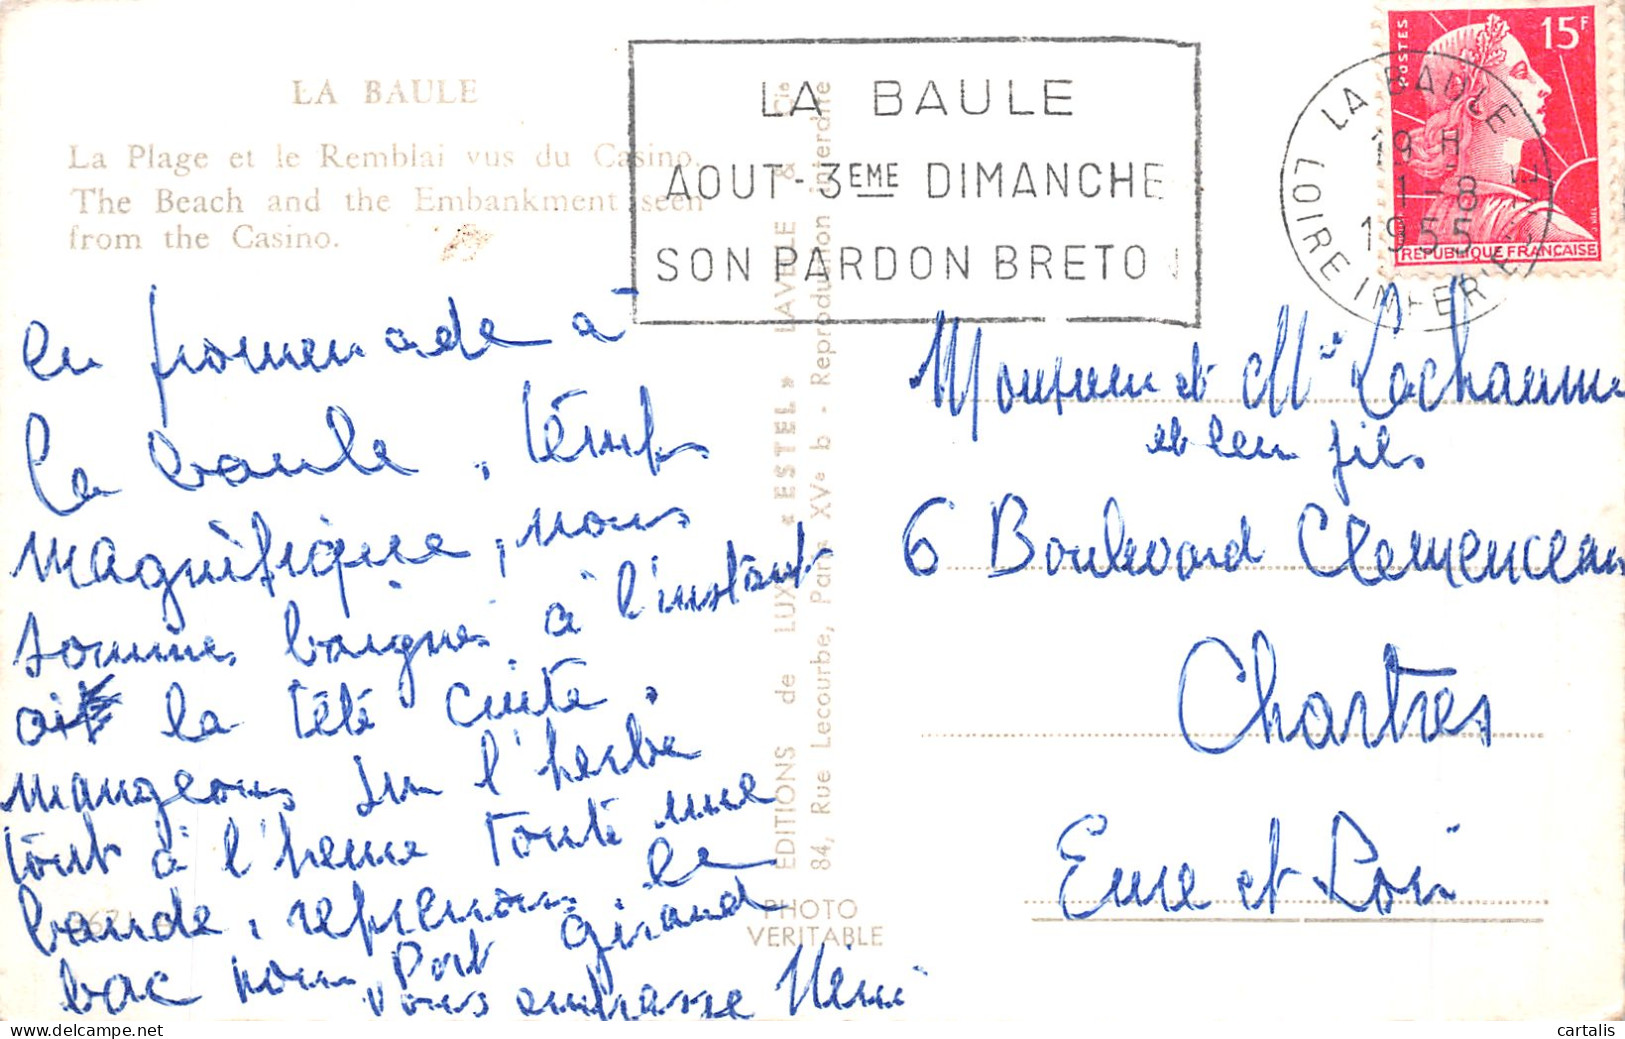 LA BAULE
La Plage et le Remblai vus du Casino.
The Beach and the Embankment seen
from the Casino.
LA BAULE
AOUT-3EME DIMANCHE
SON PARDON BRETON
POSTES
15F
REPUBLIQUE FRANÇAISE
LA BAULE
19 H
1-8
1955
LOIRE INFERIEURE
en promenade à
La baule, temps
magnifique, nous
sommes baignés à l'instant
la tété cuite.
mangeons sur l'herbe
tout à l'heure touté une
bande, reprenons le
bac pour Port Giraud
vous embrasse Mémé
EDITIONS de LUXE « ESTEL » LAVELLE & Cie
84, Rue Lecourbe, Paris XVe b - Reproduction interdite
PHOTO
VERITABLE
Monsieur et Mme Lachaume
et leur fils
6 Boulevard Clemenceau
Chartres
Eure et Loir
cartalis